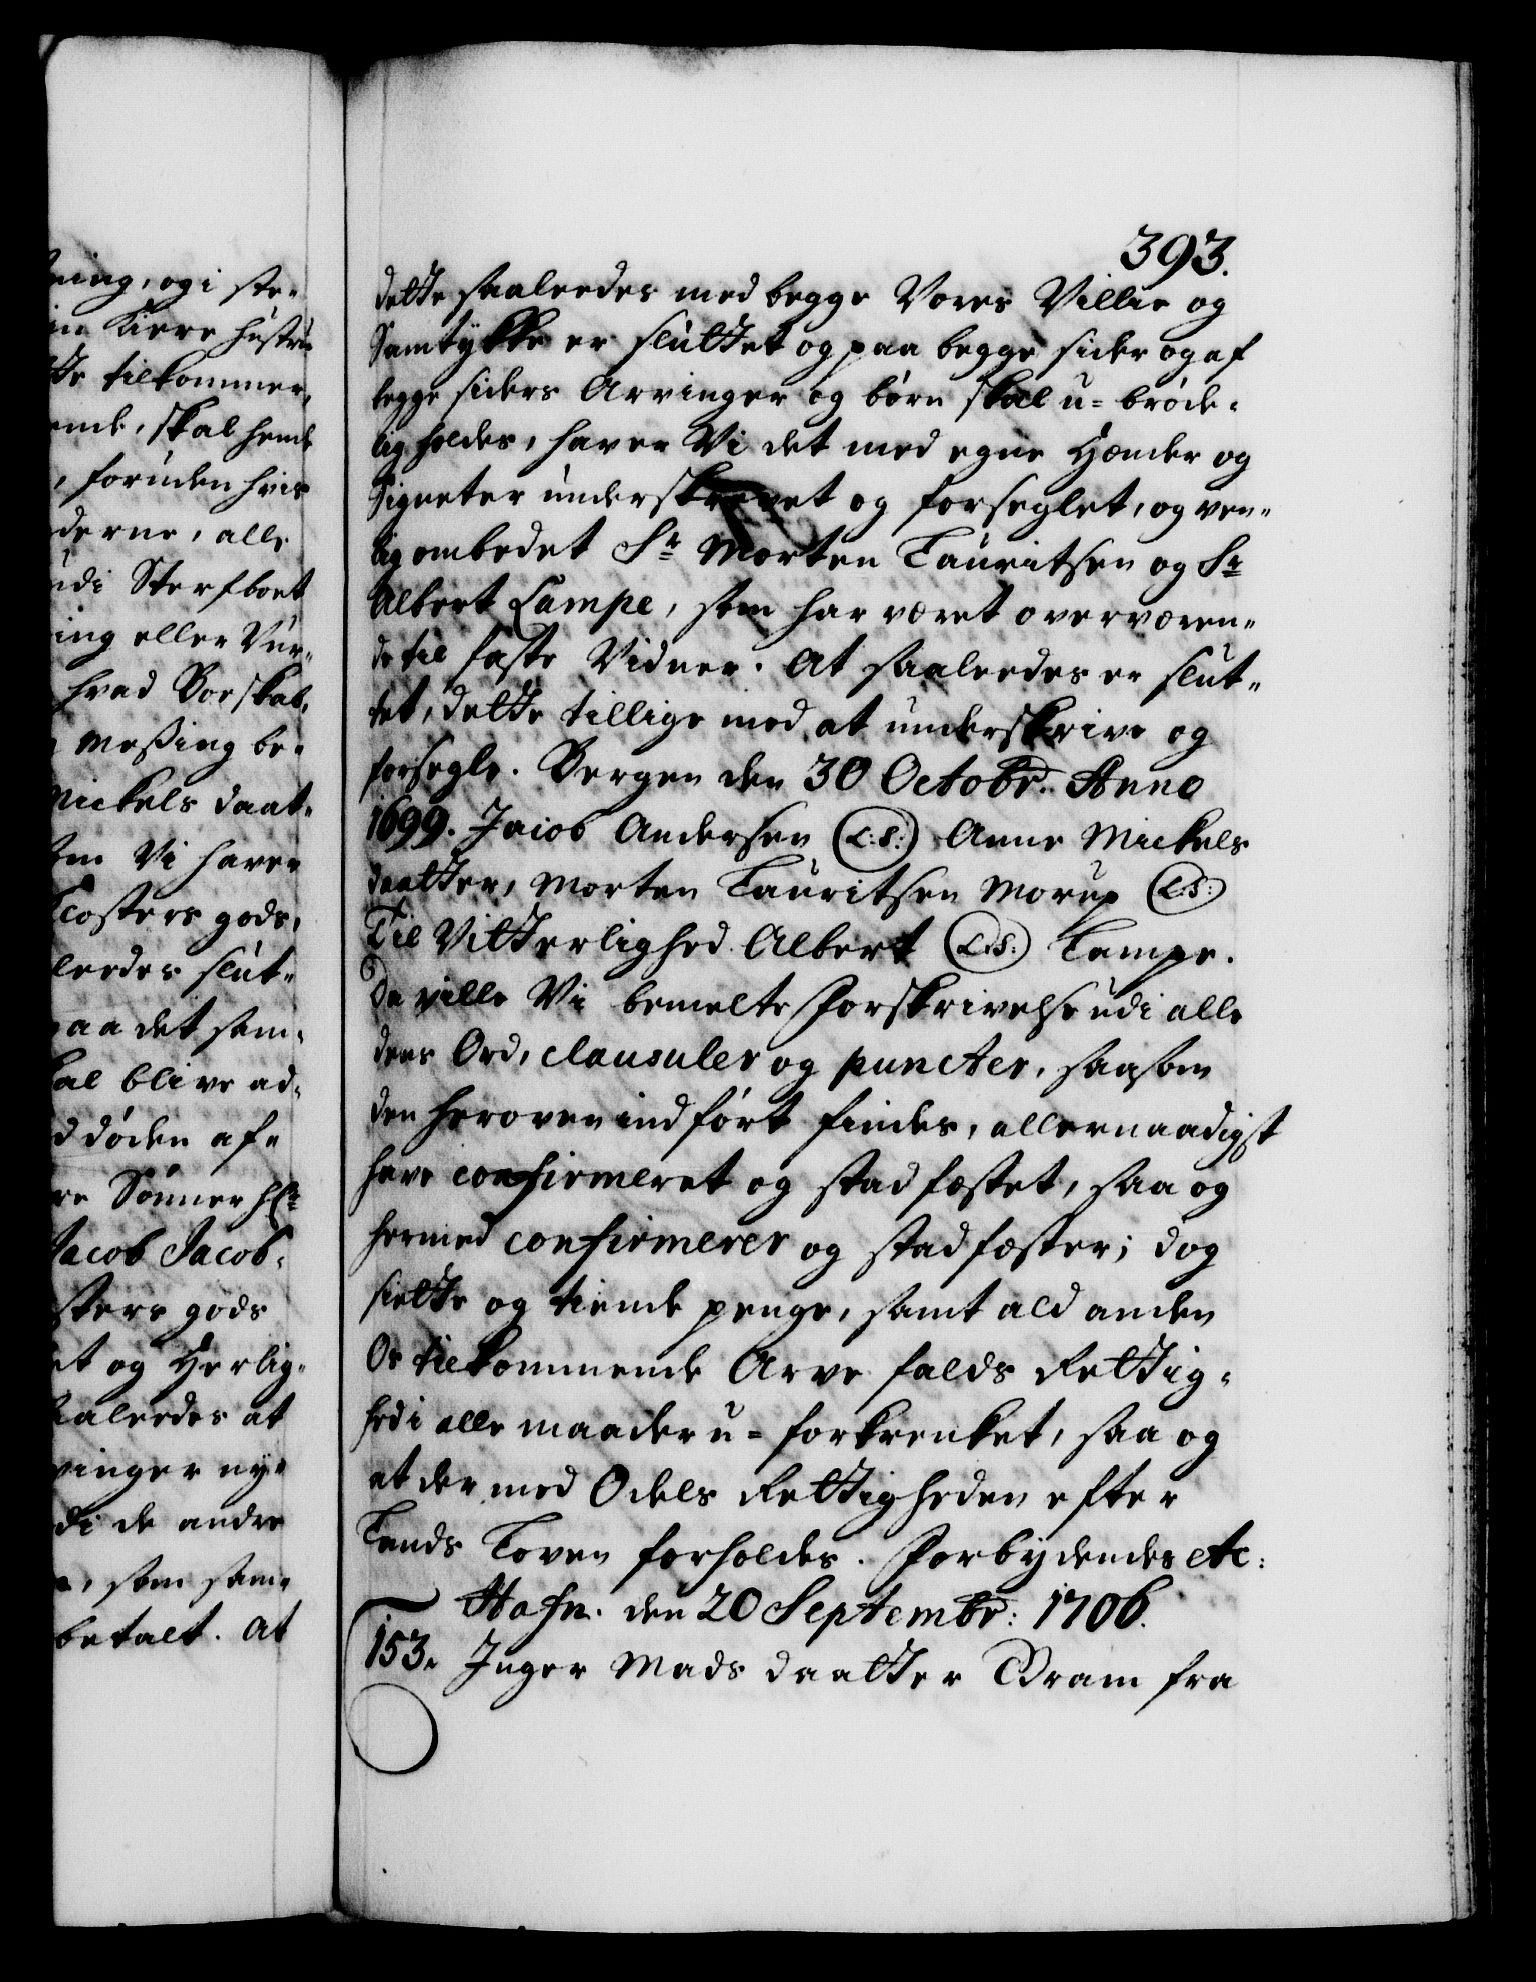 ning, og i ste-
in Kiere hustru
tte tilkommer,
ende, skal hende
, foruden hvis
derne, alle
udi Sterfboet
ing eller Vur-
hvad Boeskab,
Messing be-
Mickels daat-
som Vi haver
Closters gods,
leedes slut-
paa det sam-
kal blive ad-
d døden af-
re Sønner Hr.
Jacob Jacob-
sters gods
et og Herlig-
saaleedes at
vinger ny-
di de andre
, som sam-
betalt. At
393.
dette saaleedes med begge Vores Villie og
Samtykke er sluttet og paa begge sider og af
begge siders Arvinger og børn skal u-brøde-
lig holdes, haver Vi det med egne Hænder og
Signeter underskrevet og forseglet, og ven-
lig ombedet Sr. Morten Lauritsen og Sr.
Albert Lampe, som har været overværen-
de til faste Vidner. At saaleedes er slut-
tet, dette tillige med at underskrive og
forsegle. Bergen den 30 Octobr. Anno
1699. Jacob Andersen (L:S:) Anne Mickels
daatter, Morten Lauritsen Morup (L:S:)
Til Vitterlighed Albert (L:S:) Lampe.
Da ville Vi bemelte Forskrivelse udi alle
dens Ord, clausuler og puncter, saasom
den heroven indført findes, allernaadigst
have confirmeret og stadfæstet, saa og
hermed confirmerer og stadfæster; dog
siette og tiende penge, samt ald anden
Os tilkommende Arve falds Rettig-
hed i alle maader u-forkrenket, saa og
at der med Odels Rettigheden efter
Lands Loven forholdes. Forbydendes etc:
Hafn. den 20 Septembr: 1706.
153. Inger Mads daatter Bram fra